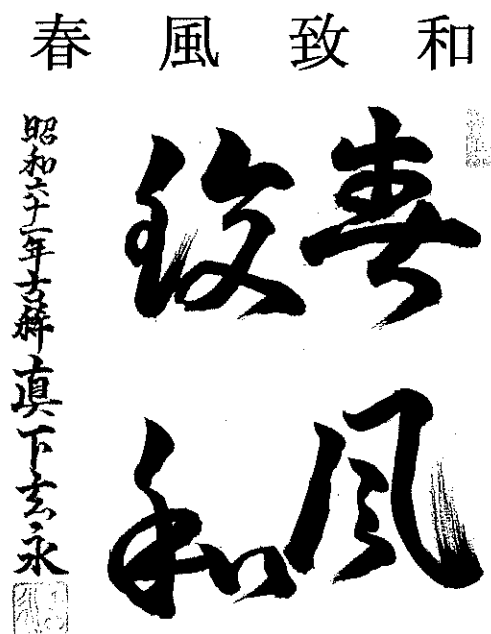 春風致和
春風
致和
昭和六十一年吉祥真下玄永